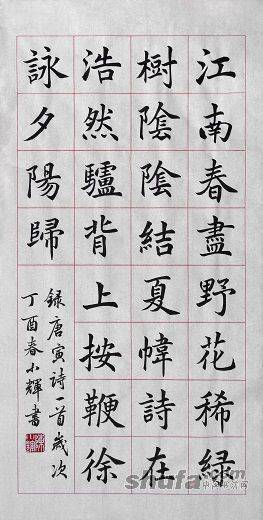 江南春盡野花稀緑
樹陰陰結夏幃詩在
浩然驢背上按鞭徐
詠夕陽歸
録唐寅詩一首歲次
丁酉春小輝書
shufa.com